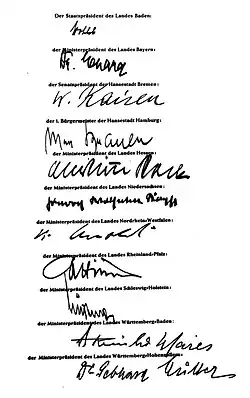 Der Staatspräsident des Landes Baden:
Wohleb
der Ministerpräsident des Landes Bayern:
Dr. Ehard
der Senatspräsident der Hansestadt Bremen:
W. Kaisen
der 1. Bürgermeister der Hansestadt Hamburg:
Max Brauer
der Ministerpräsident des Landes Hessen:
der Ministerpräsident des Landes Niedersachsen:
der Ministerpräsident des Landes Nordrhein/Westfalen:
K. Arnold
der Ministerpräsident des Landes Rheinland-Pfalz:
Altmeier
der Ministerpräsident des Landes Schleswig/Holstein:
der Ministerpräsident des Landes Württemberg/Baden:
Reinhold Maier
der Ministerpräsident des Landes Württemberg/Hohenzollern:
Dr. Gebhard Müller